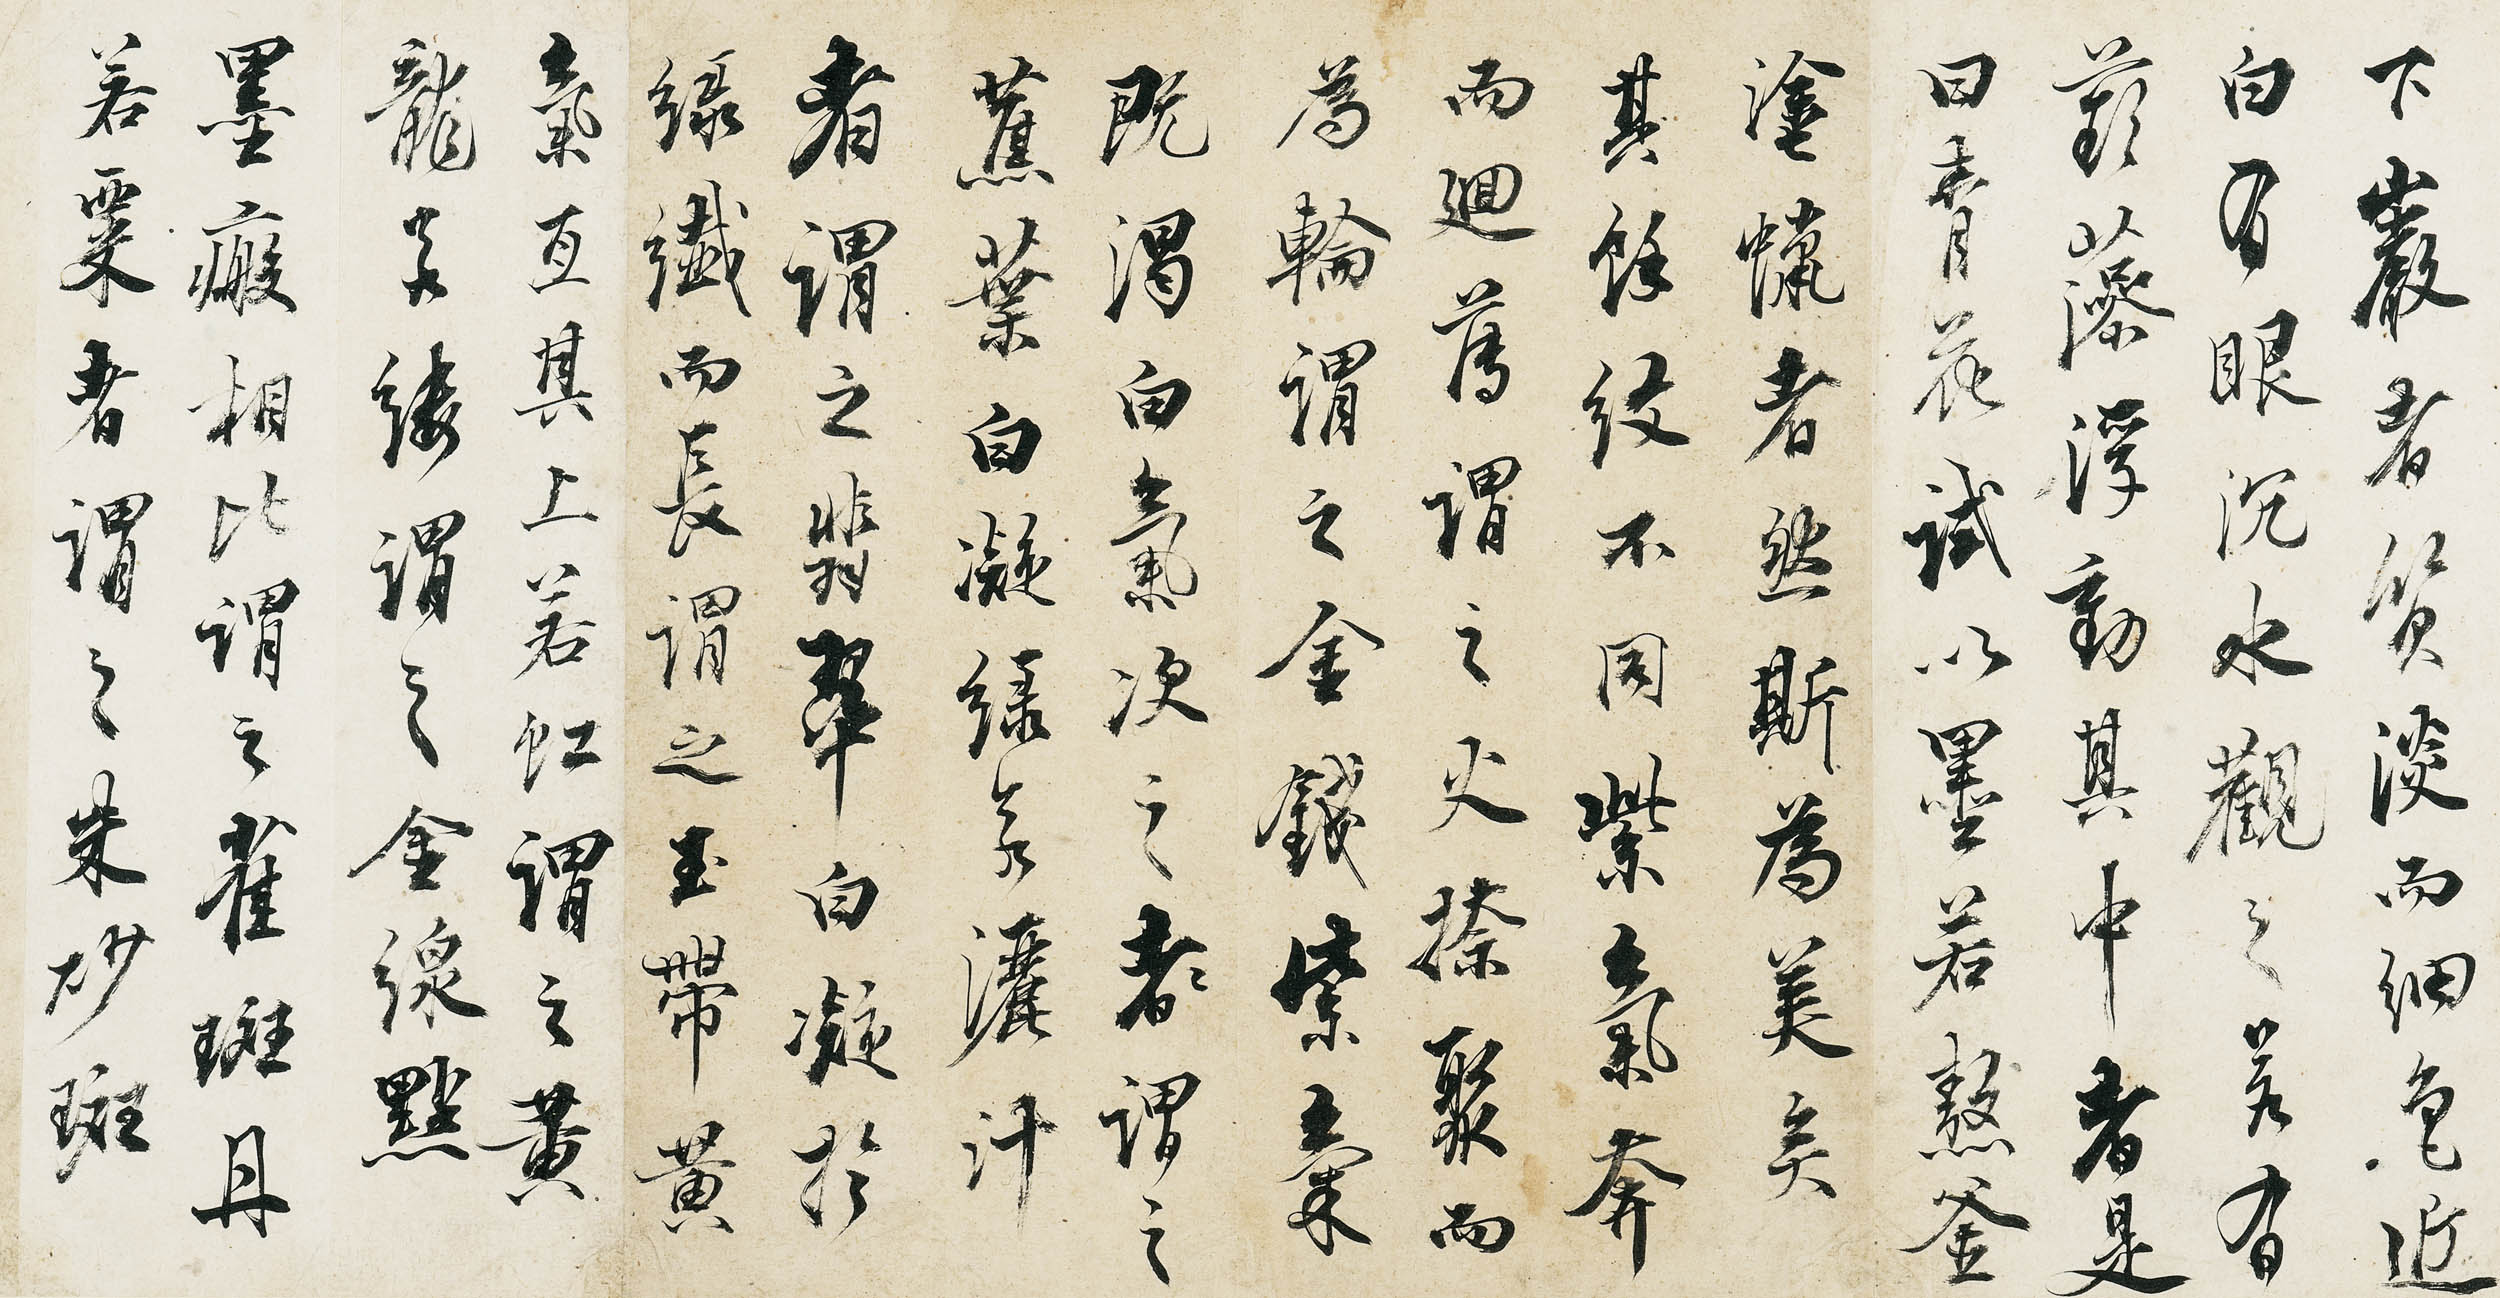 下巖者質淡而細色近
白有眼沉水觀之若有
蘋藻浮動其中者是
曰青花試以墨若熬釜
塗蠟者然斯為美矣
其餘紋不同紫氣奔
而廻薄謂之火捺聚而
為輪謂之金錢紫氣
既渴白氣次之者謂之
蕉葉白凝綠若灑汁
者謂之翡翠白凝於
綠纖而長謂之玉帶黃
氣亙其上若虹謂之黃
龍若縷謂之金線點
墨瘢相比謂之雀斑丹
若粟者謂之朱砂斑